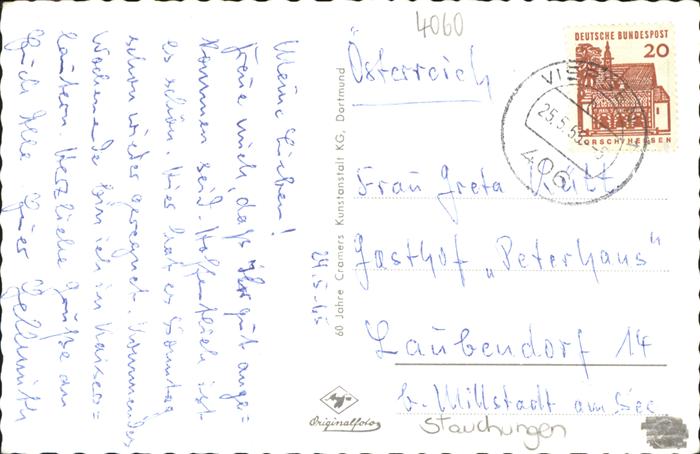 4060
DEUTSCHE BUNDESPOST
20
LORSCH/HESSEN
25.5.65
406
Meine Lieben!
Freue mich, daß Ihr gut ange=
kommen seid. Hoffentlich ist
es schön. Hier hat es Sonntag
schon wieder geregnet. Kommendes
Wochenende bin ich in Kaisers=
lautern. Herzliche Grüße an
Euch Alle. Euer Hellmuth
24.5.65
60 Jahre Cramers Kunstanstalt KG, Dortmund
Originalfoto
Österreich
Frau Greta
Gasthof „Peterhaus"
Laubendorf 14
b. Millstadt am See
Stauchungen